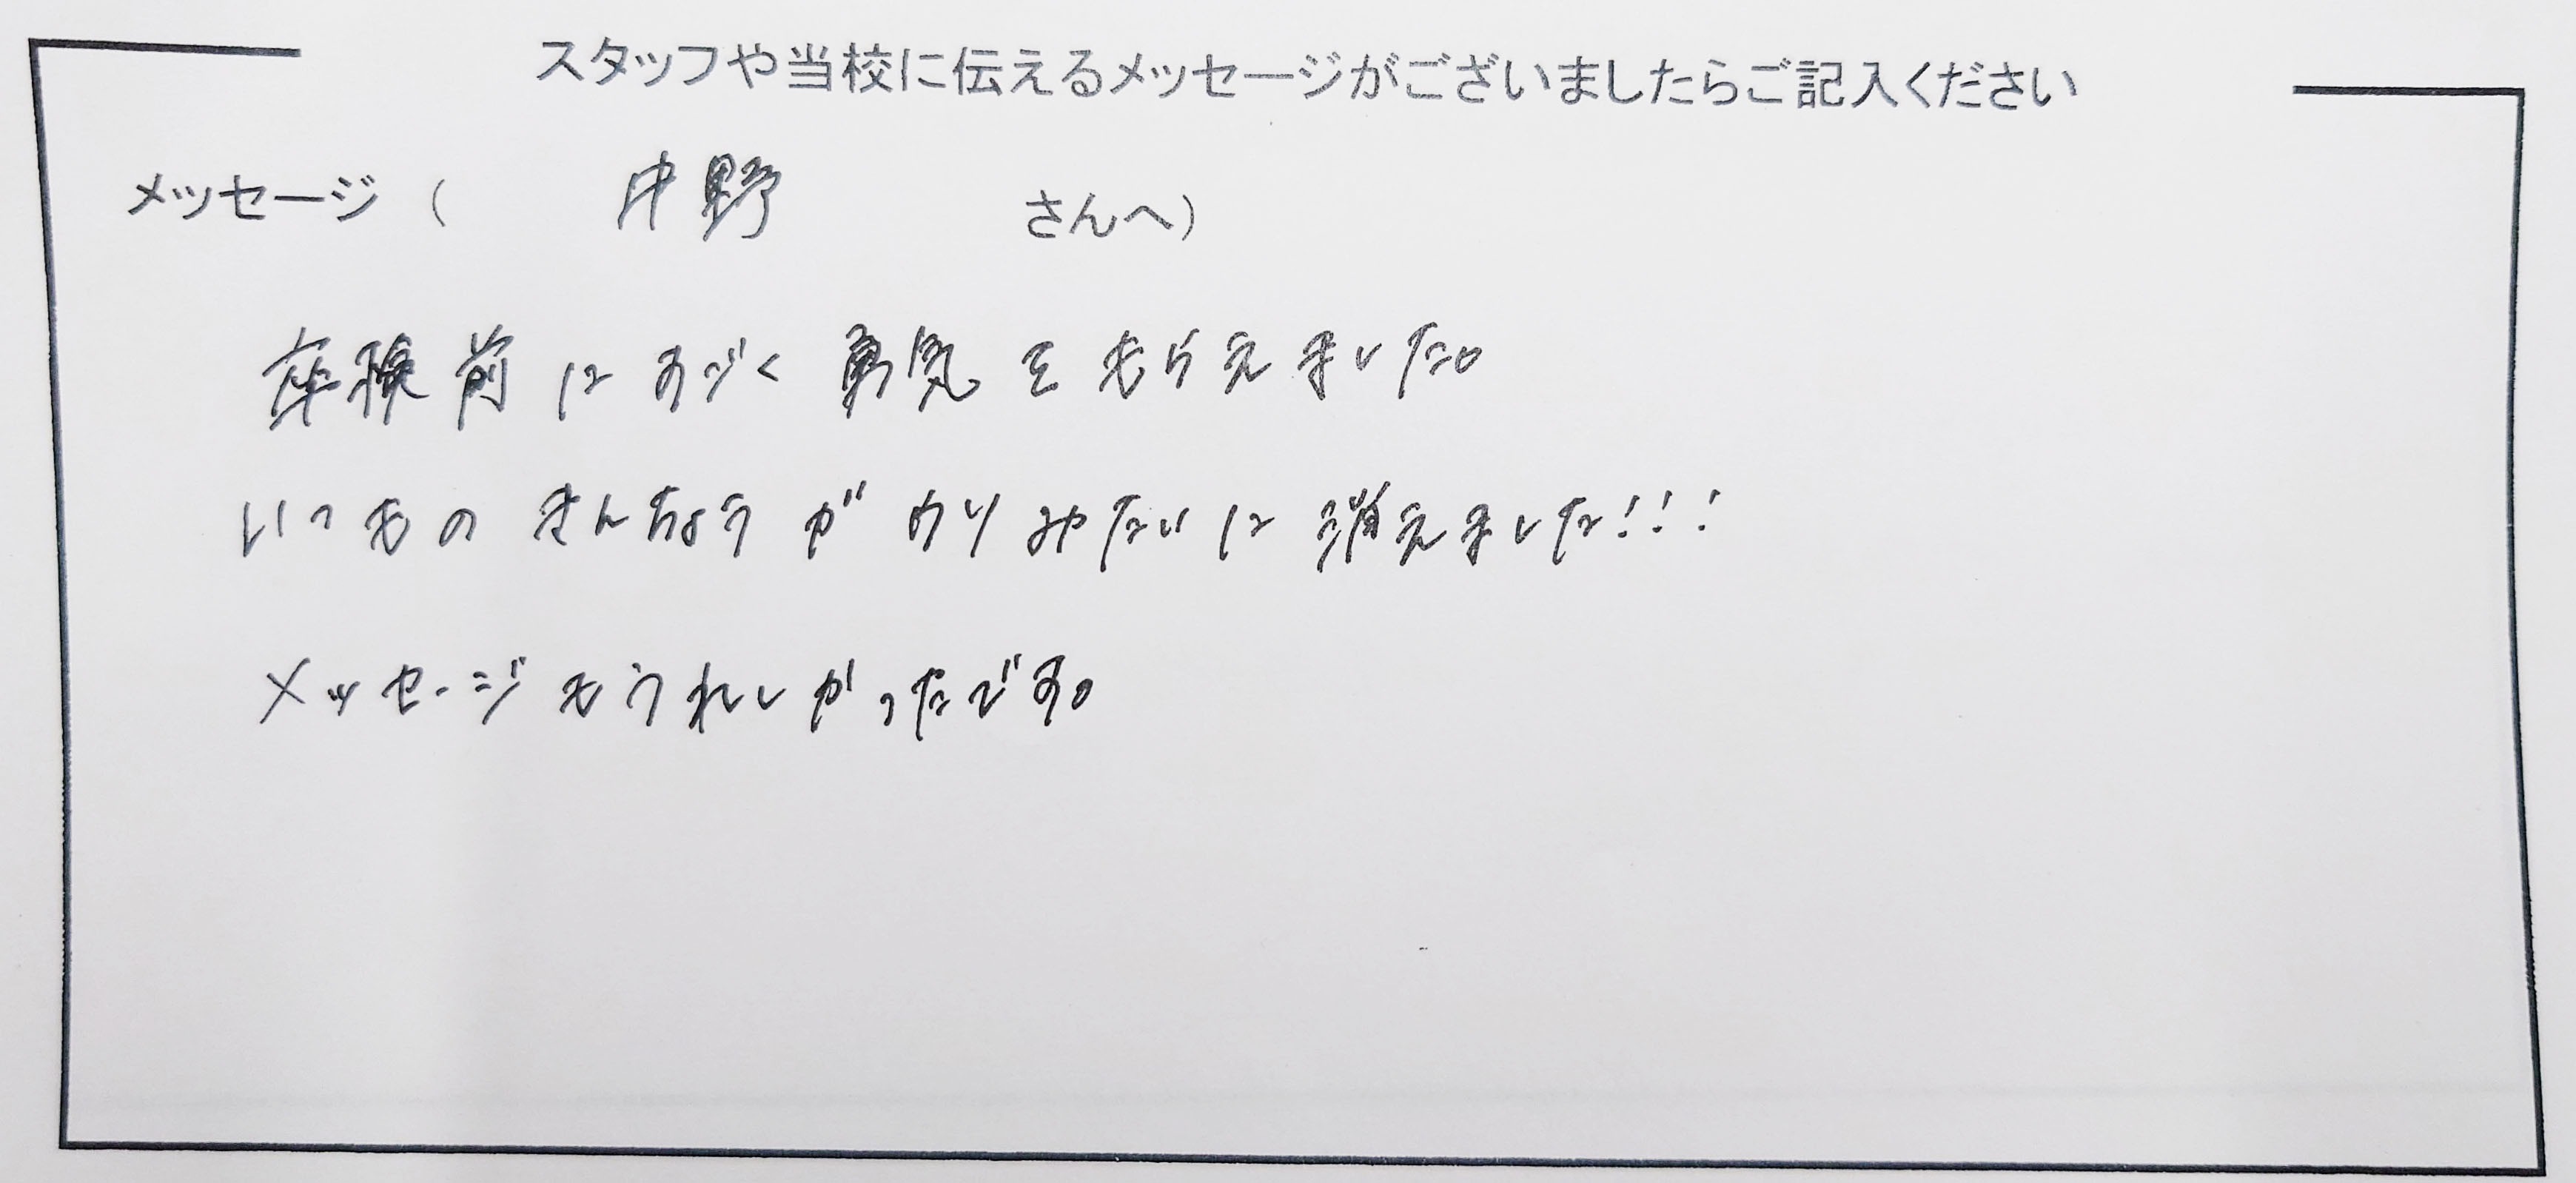 スタッフや当校に伝えるメッセージがございましたらご記入ください
メッセージ（ 中野 さんへ）
卒検前にすごく勇気をもらえました。
いつものきんちょうがうそみたいに消えました!!!
メッセージもうれしかったです。